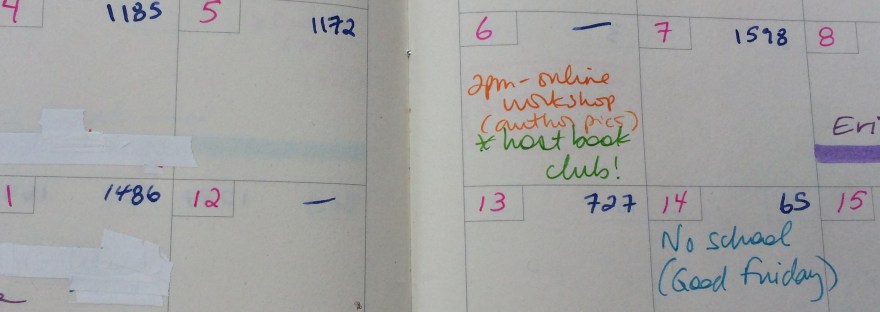 4 1185 5 1172 6 — 7 1598 8
2pm - online
workshop
(author pics)
* host book
club!
Eri
1 1486 12 — 13 727 14 65 15
No school
(Good Friday)